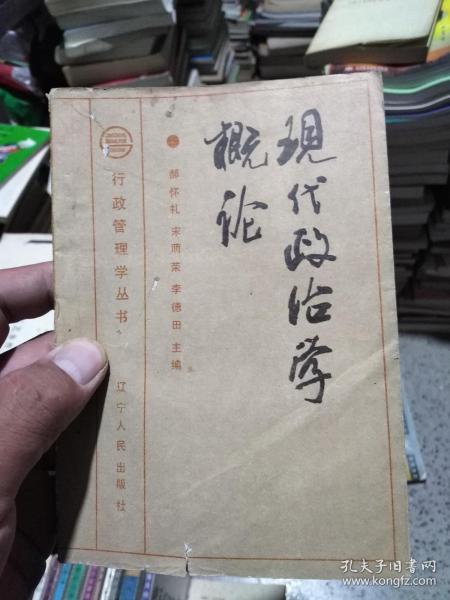 現代政治学
概论
郝怀礼 宋丽荣 李德田 主编
行政管理学丛书
辽宁人民出版社
孔夫子旧书网
www.kongfz.com